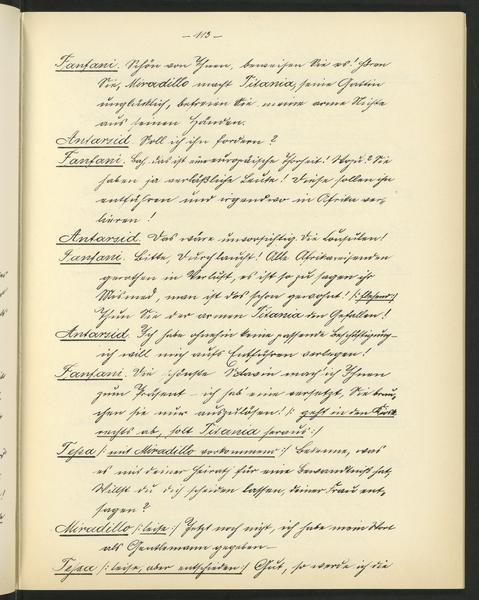 — 113 —
Fanfani. Schön von Ihnen, beweisen Sie es! Hören
Sie, Miradillo macht Titania, seine Gattin
unglücklich, befreien Sie meine arme Nichte
aus seinen Händen.
Antarsid. Soll ich ihn fordern?
Fanfani. Bah, das ist eine europäische Thorheit! Wozu? Sie
haben ja verläßliche Leute! Diese sollen ihn
entführen und irgendwo in Afrika ver-
lieren!
Antarsid. Das wäre unvorsichtig. Die Consulen!
Fanfani. Bitte, Durchlaucht! Alle Afrikareisenden
gerathen in Verlust, es ist so zu sagen ihr
man ist das schon gewohnt! /: flehend :/
Thun Sie der armen Titania den Gefallen!
Antarsid. Ich habe ohnehin keine passende Beschäftigung —
ich will mich aufs Entführen verlegen!
Fanfani. Die schönste Sclavin mach ich Ihnen
zum Präsent — ich hab' eine versetzt, Sie brau-
chen sie nur auszulösen! /: geht in den Kiosk
rechts ab, holt Titania heraus :/
Tessa /: mit Miradillo vorkommend :/ Bekenne, was
es mit deiner Heirath für eine Bewandtniß hat,
Willst du dich scheiden lassen, deiner Frau ent-
sagen?
Miradillo /: leise :/ Jetzt noch nicht, ich habe mein Wort
als Gentlemann gegeben —
Tessa /: leise, aber entschieden :/ Gut, so werde ich die